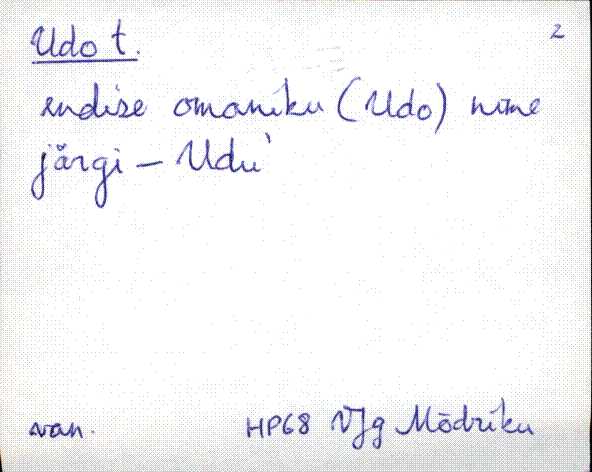 Udo t. 2
endise omaniku (Udo) nime
järgi – Udu'
van. HP68 VJg Mõdriku